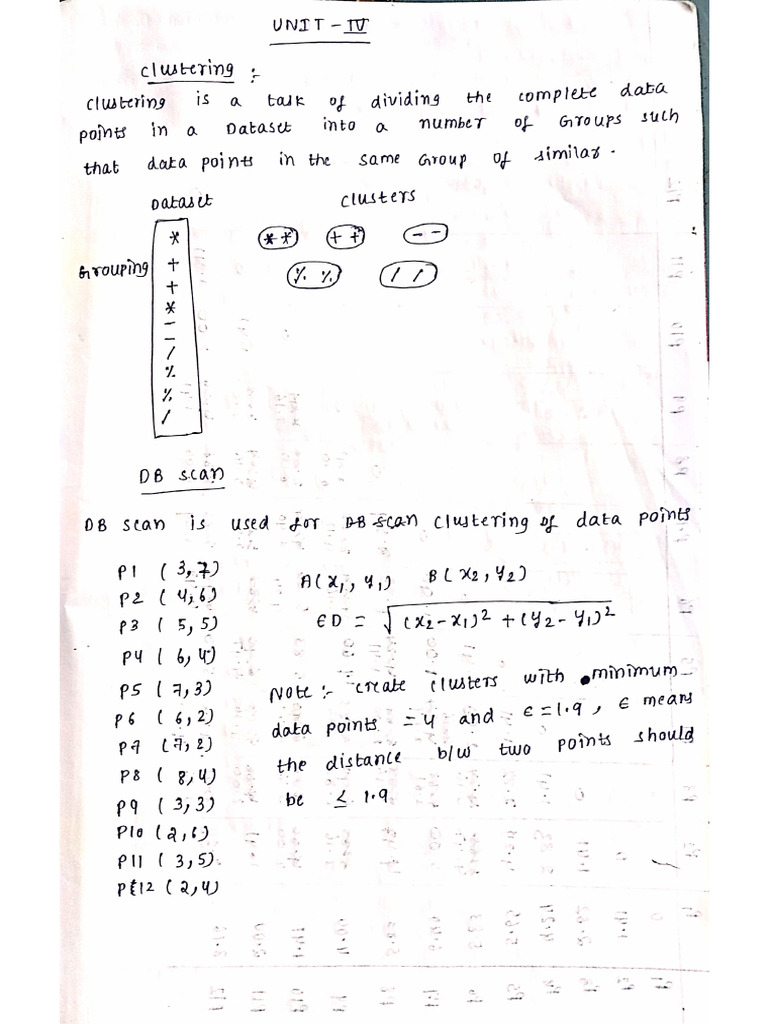 UNIT - IV
Clustering :-
Clustering is a task of dividing the complete data
points in a Dataset into a number of Groups such
that data points in the same Group of similar.
Dataset Clusters
* ** ++ --
Grouping + % % / /
+
*
-
-
/
%
%
/
DB scan
DB scan is used for DB scan clustering of data points
P1 ( 3,7) A(x1, y1) B(x2, y2)
P2 ( 4,6)
P3 ( 5,5) ED = √(x2-x1)2 + (y2-y1)2
P4 ( 6,4)
P5 ( 7,3) Note :- create clusters with minimum
P6 ( 6,2) data points = 4 and ϵ = 1.9 , ϵ means
P7 (7,2) the distance b/w two points should
P8 ( 8,4) be ≤ 1.9
P9 ( 3,3)
P10 (2,6)
P11 ( 3,5)
P12 ( 2,4)